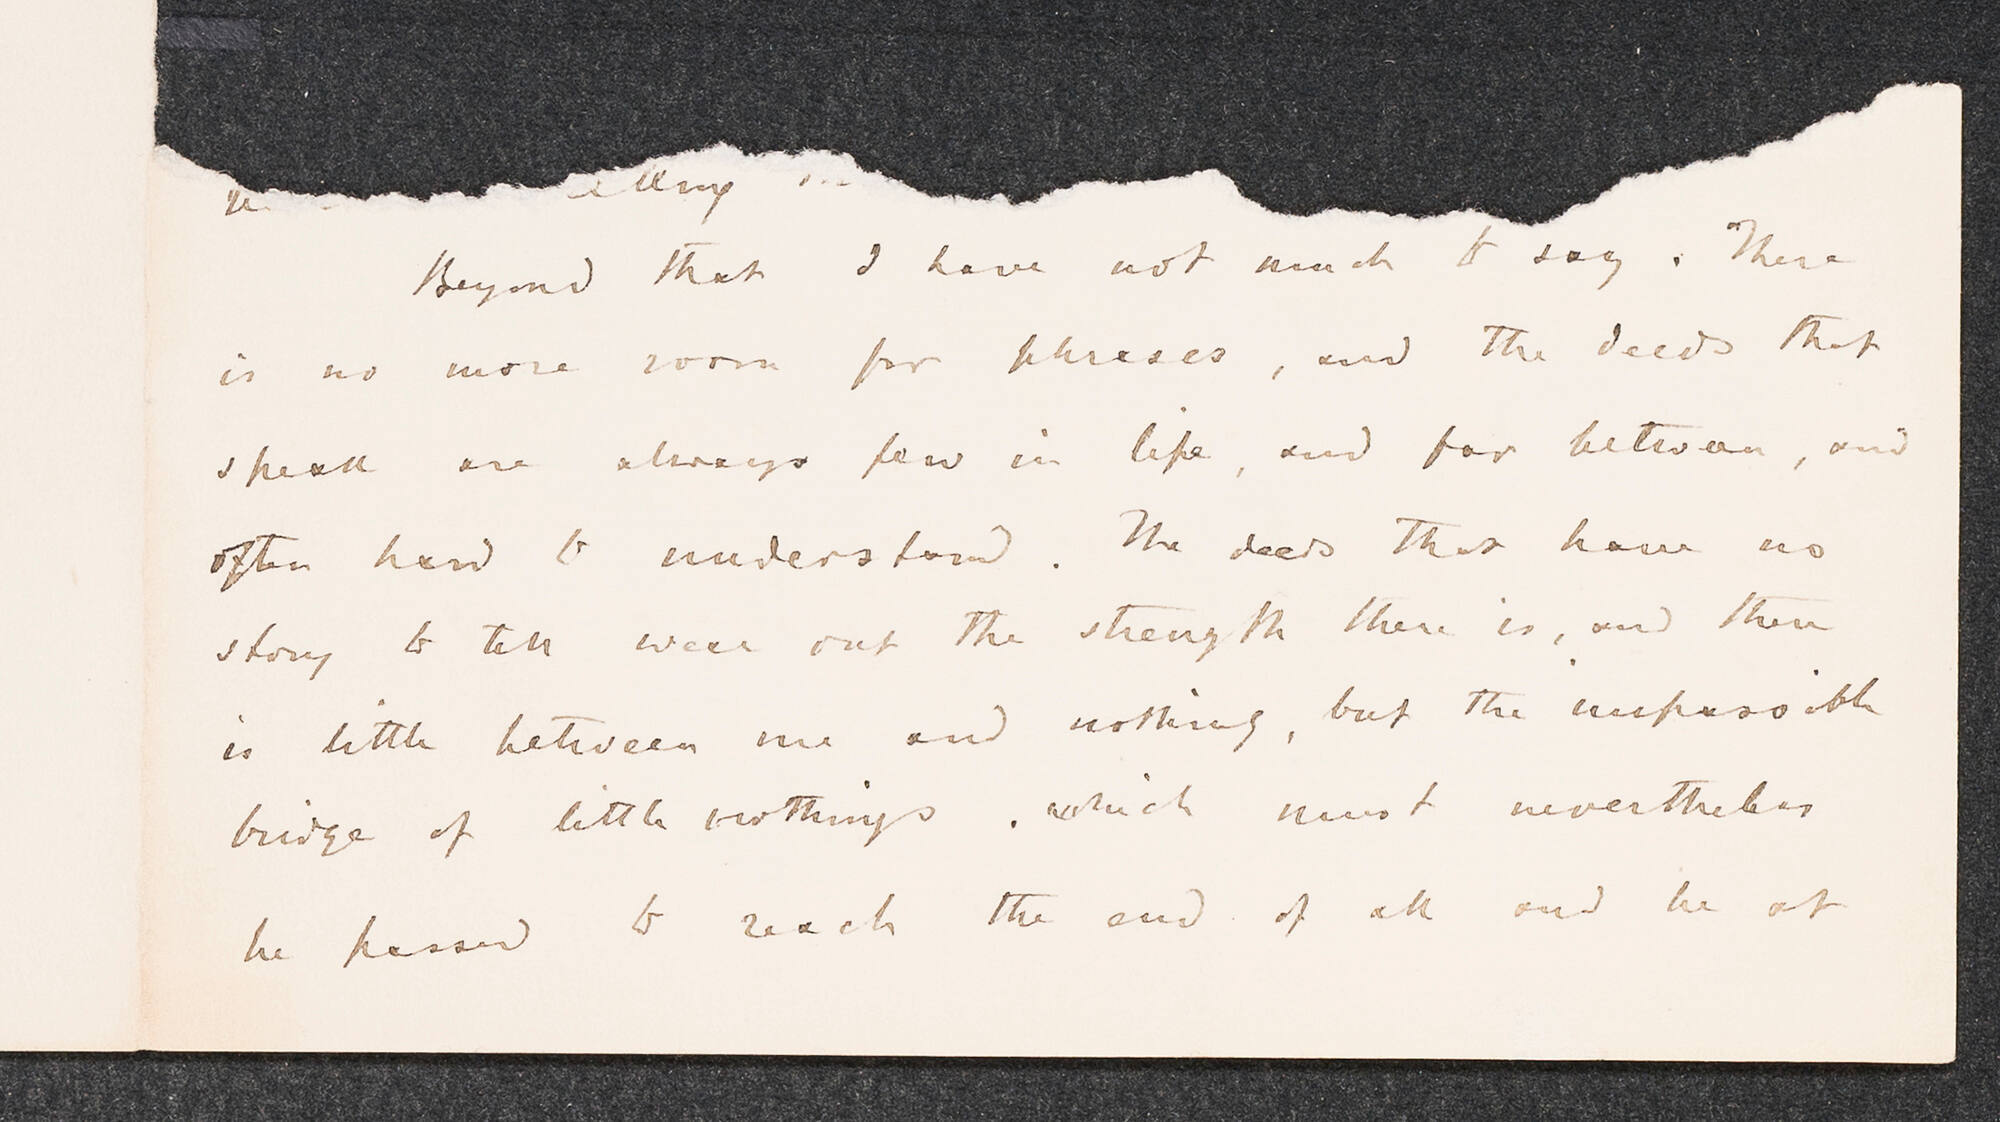 Beyond that I have not much to say. There
is no more room for phrases, and the deeds that
speak are always few in life, and far between, and
often hard to understand. The deeds that have no
story to tell wear out the strength there is, and there
is little between me and nothing, but the impassible
bridge of little nothings. which must nevertheless
be passed to reach the end of all and be at